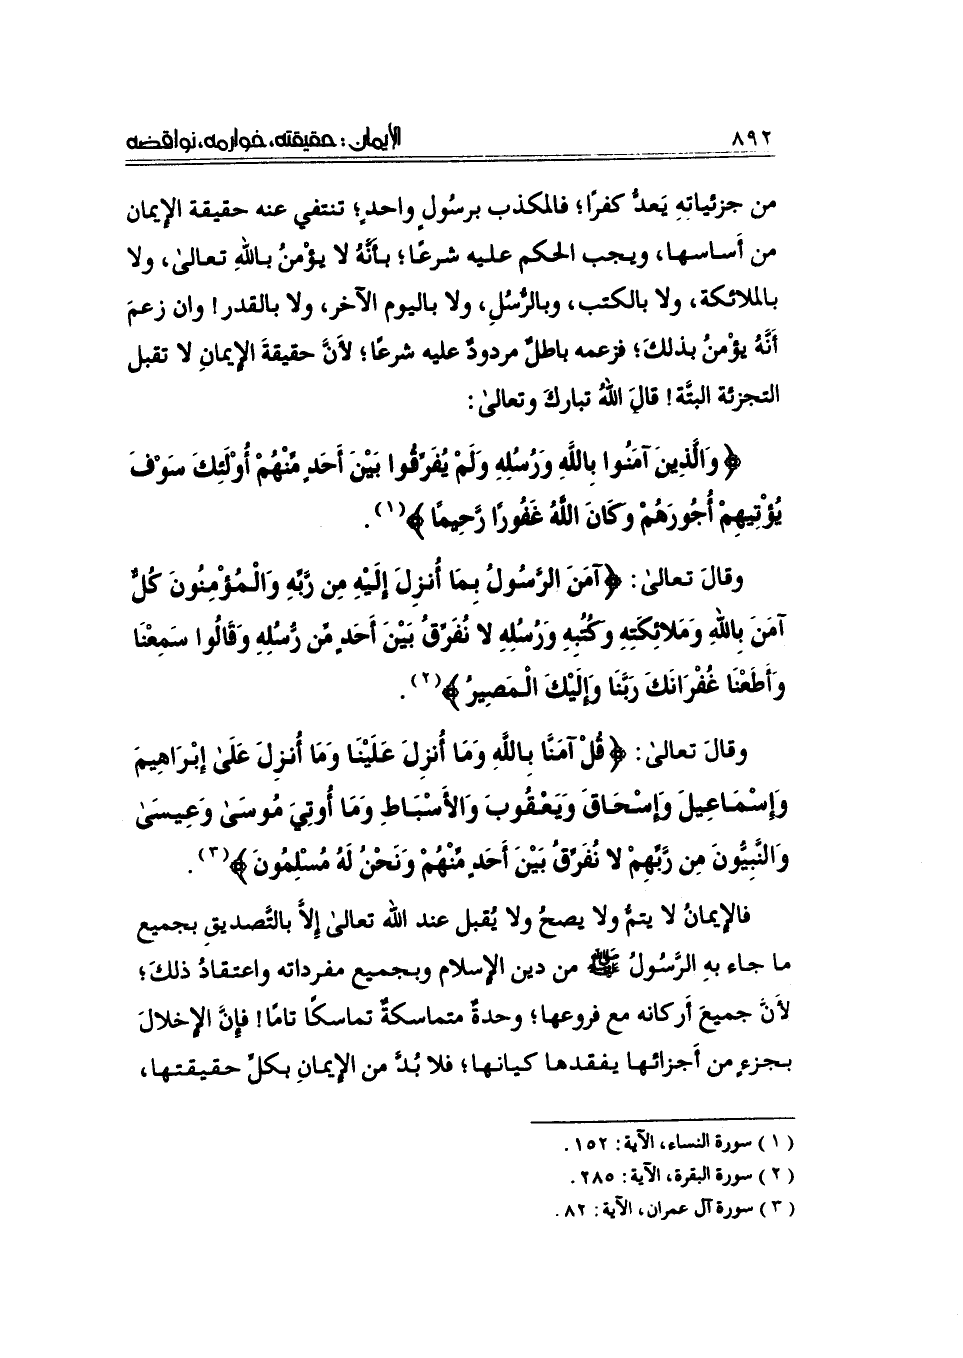 ٨٩٢
الإيمان : حقيقته، خوارمه، نواقضه
من جزئياتِهِ يَعدُّ كفرًا؛ فالمكذب برسُولٍ واحدٍ؛ تنتفي عنه حقيقة الإيمان
من أساسها، ويجب الحكم عليه شرعًا؛ بأنَّهُ لا يؤمنُ باللهِ تعالىٰ، ولا
بالملائكة، ولا بالكتب، وبالرُّسُلِ، ولا باليوم الآخر، ولا بالقدر! وان زعمَ
أنَّهُ يؤمنُ بذلكَ؛ فزعمه باطلٌ مردودٌ عليه شرعًا؛ لأنَّ حقيقةَ الإيمانِ لا تقبل
التجزئة البتَّة! قالَ اللهُ تباركَ وتعالىٰ:
﴿وَالَّذِينَ آمَنُوا بِاللَّهِ وَرُسُلِهِ وَلَمْ يُفَرِّقُوا بَيْنَ أَحَدٍ مِّنْهُمْ أُوْلَئِكَ سَوْفَ
يُؤْتِيهِمْ أُجُورَهُمْ وَكَانَ اللَّهُ غَفُورًا رَّحِيمًا﴾(١).
وقالَ تعالىٰ: ﴿آمَنَ الرَّسُولُ بِمَا أُنزِلَ إِلَيْهِ مِن رَّبِّهِ وَالْمُؤْمِنُونَ كُلٌّ
آمَنَ بِاللهِ وَمَلائِكَتِهِ وَكُتُبِهِ وَرُسُلِهِ لا نُفَرِّقُ بَيْنَ أَحَدٍ مِّن رُّسُلِهِ وَقَالُوا سَمِعْنَا
وَأَطَعْنَا غُفْرَانَكَ رَبَّنَا وَإِلَيْكَ الْمَصِيرُ﴾(٢).
وقالَ تعالىٰ: ﴿قُلْ آمَنَّا بِاللَّهِ وَمَا أُنزِلَ عَلَيْنَا وَمَا أُنزِلَ عَلَىٰ إِبْرَاهِيمَ
وَإِسْمَاعِيلَ وَإِسْحَاقَ وَيَعْقُوبَ وَالأَسْبَاطِ وَمَا أُوتِيَ مُوسَىٰ وَعِيسَىٰ
وَالنَّبِيُّونَ مِن رَّبِّهِمْ لا نُفَرِّقُ بَيْنَ أَحَدٍ مِّنْهُمْ وَنَحْنُ لَهُ مُسْلِمُونَ﴾(٣).
فالإيمانُ لا يتمُّ ولا يصحُ ولا يُقبل عند الله تعالىٰ إلاَّ بالتَّصديقِ بجميع
ما جاء بهِ الرَّسُولُ ﷺ من دين الإسلام وبجميع مفرداته واعتقادُ ذلكَ؛
لأنَّ جميعَ أركانه مع فروعها؛ وحدةٌ متماسكةٌ تماسكًا تامًا! فإنَّ الإخلالَ
بجزءٍ من أجزائها يفقدها كيانها؛ فلا بُدَّ من الإيمانِ بكلِّ حقيقتها،
(١) سورة النساء، الآية: ١٥٢.
(٢) سورة البقرة، الآية: ٢٨٥.
(٣) سورة آل عمران، الآية: ٨٢.